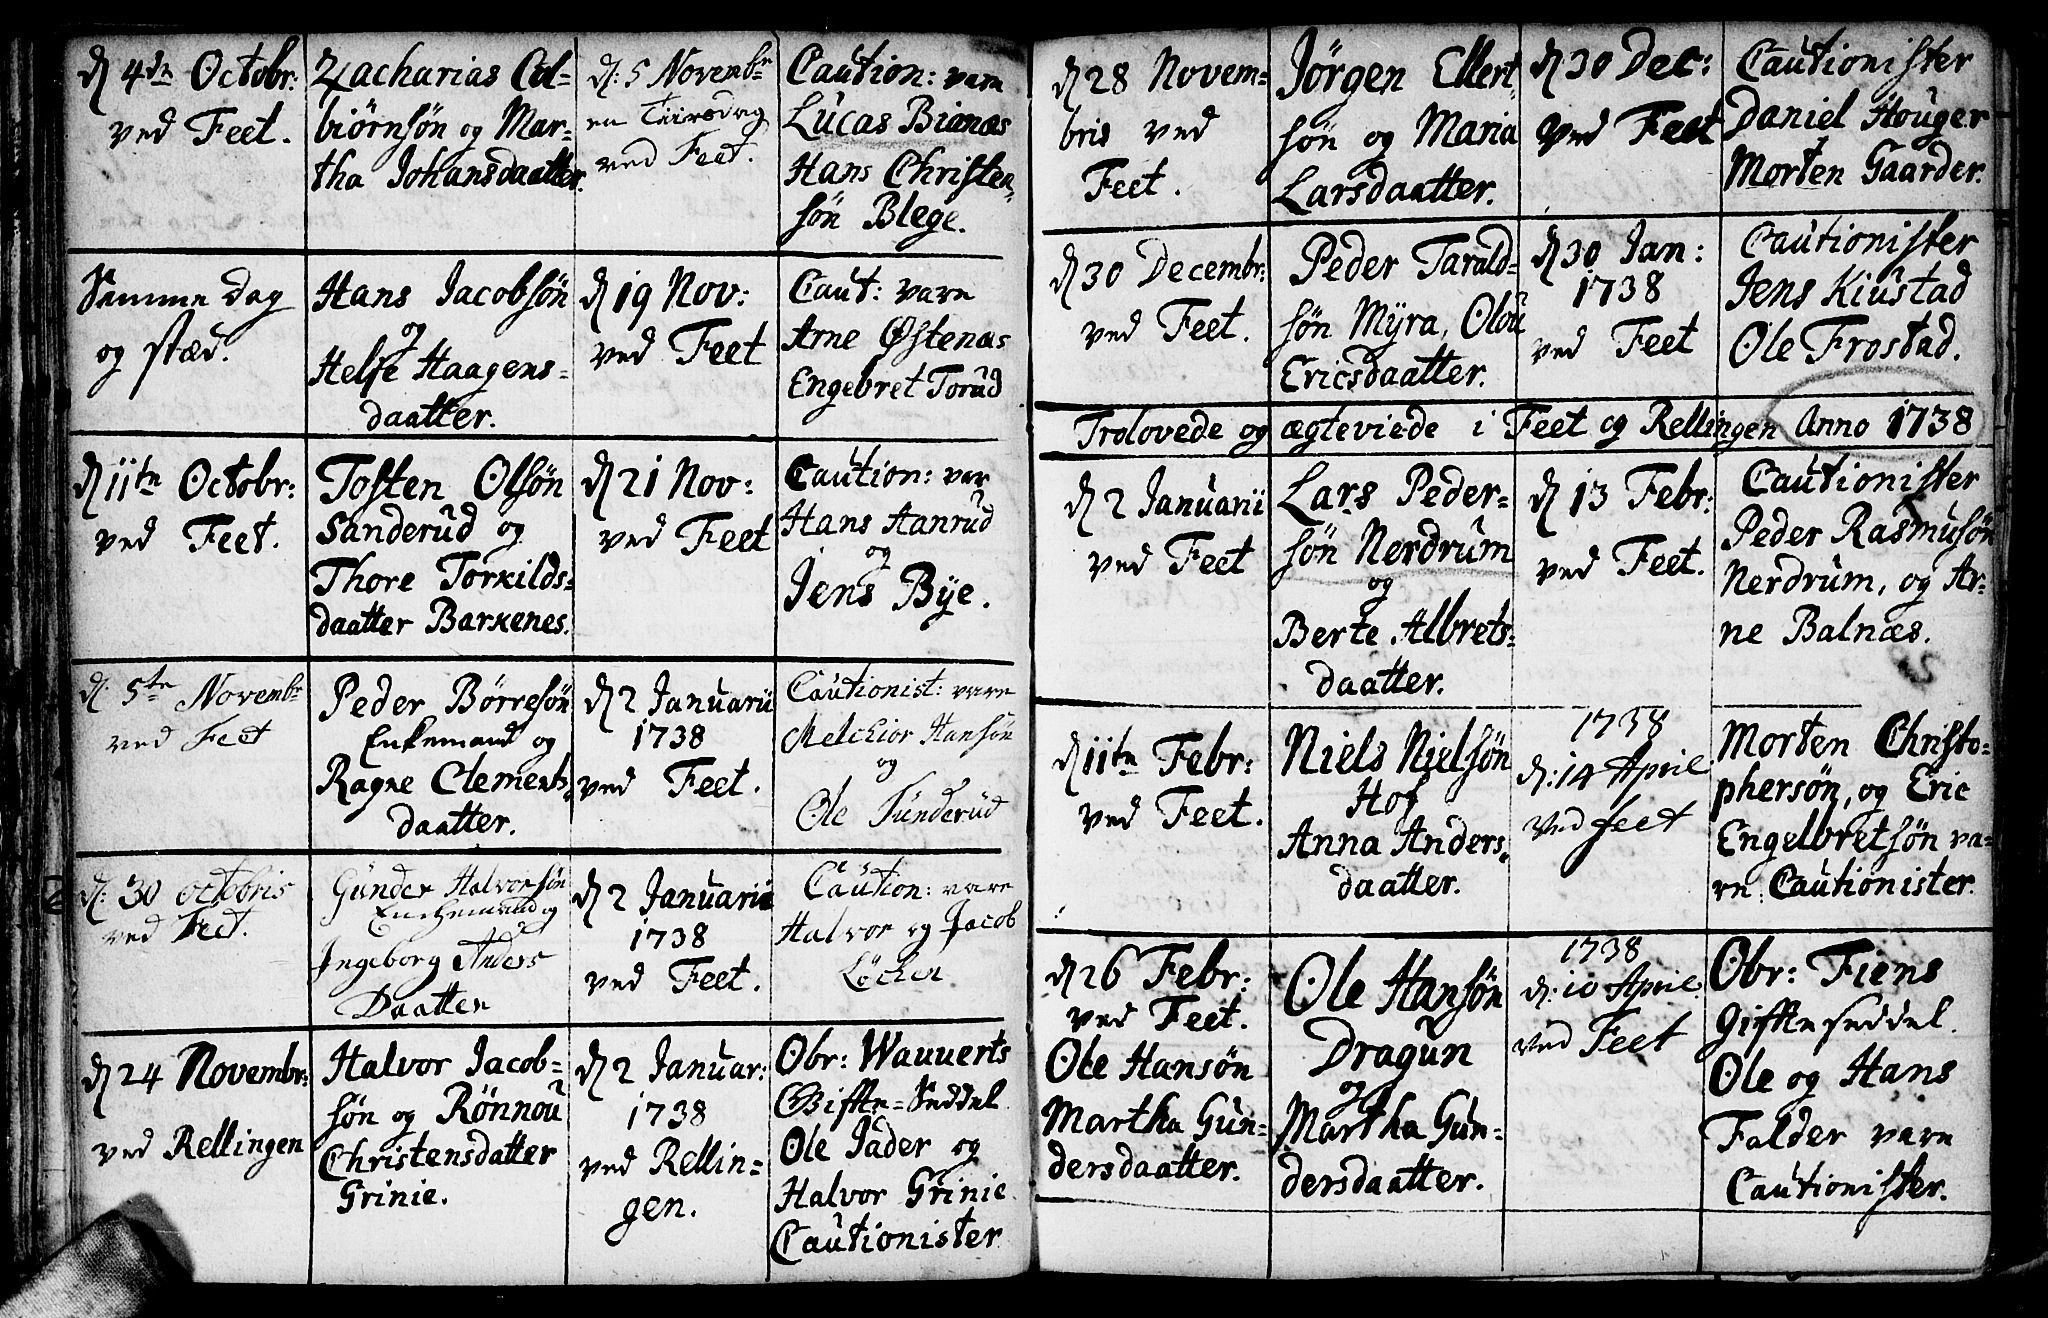 d 4de Octobr:
ved Feet.
Zacharias Col-
biørnsøn og Mar-
tha Johansdaatter.
d: 5 Novembr
en Tiirsdag
ved Feet.
Caution: vare
Lucas Bianæs
Hans Christen-
søn Blege.
Samme dag
og stæd.
Hans Jacobsøn
og
Helje Haagens-
daatter.
d 19 Nov:
ved Feet
Caut: vare
Arne Østenæs
Engebret Torud
d 11te Octobr:
ved Feet.
Tosten Olsøn
Sanderud og
Thore Torkilds-
daatter Barkenes.
d 21 Nov:
ved Feet
Caution: var
Hans Aanrud
og
Jens Bÿe.
d: 5te Novembr
ved Feet
Peder Børresøn
Enkemand og
Ragne Clements-
daatter.
d 2 Januarii
1738
ved Feet.
Cautionist: vare
Melchior Hansøn
og
Ole Tunderud
d: 30 octobris
ved Feet.
Gunder Halvorsøn
Enchemand og
Ingeborg Anders
Daatter
d 2 Januarii
1738
ved Feet.
Caution: vare
Halvor og Jacob
Løcher
d 24 Novembr:
ved Rellingen
Halvor Jacob-
søn og Rönnou
Christensdatter
Grinie.
d 2 Januar:
1738
ved Rellin-
gen.
Obr: Wauverts
Giffte-Seddel
Ole Jader og
Halvor Grinie
Cautionister
d 28 Novem-
bris ved
Feet.
Jørgen Ellert-
søn og Maria
Larsdaatter.
d 30 Dec:
Ved Feet
Cautionister
Daniel Houger
Morten Gaarder.
d 30 Decembr:
ved Feet.
Peder Tarald-
søn Mÿra, Olou
Ericsdaatter.
d 30 Jan:
1738
ved Feet
Cautionister
Jens Kiustad
Ole Frostad.
Trolovede og ægteviede i Feet og Rellingen Anno 1738
d 2 Januarii
ved Feet
Lars Peder-
søn Nerdrum
og
Berte Albrets-
daatter.
d 13 Febr:
ved Feet.
Cautionister
Peder Rasmusøn
Nerdrum, og Ar-
ne Balnæs.
d 11te Febr:
ved Feet.
Niels Nielsøn
Hof
Anna Anders-
daatter.
1738
d: 14 April
Ved feet
Morten Christo-
phersøn, og Eric
Engelbretsøn va-
re Cautionister.
d 26 Febr:
ved Feet.
Ole Hansøn
Martha Gun-
dersdaatter.
Ole Hansøn
Dragun
og
Martha Gun-
dersdaatter.
1738
d: 10 April
Ved Feet
Obr: Fiens
Giffte seddel.
Ole og Hans
Falder vare
Cautionister.